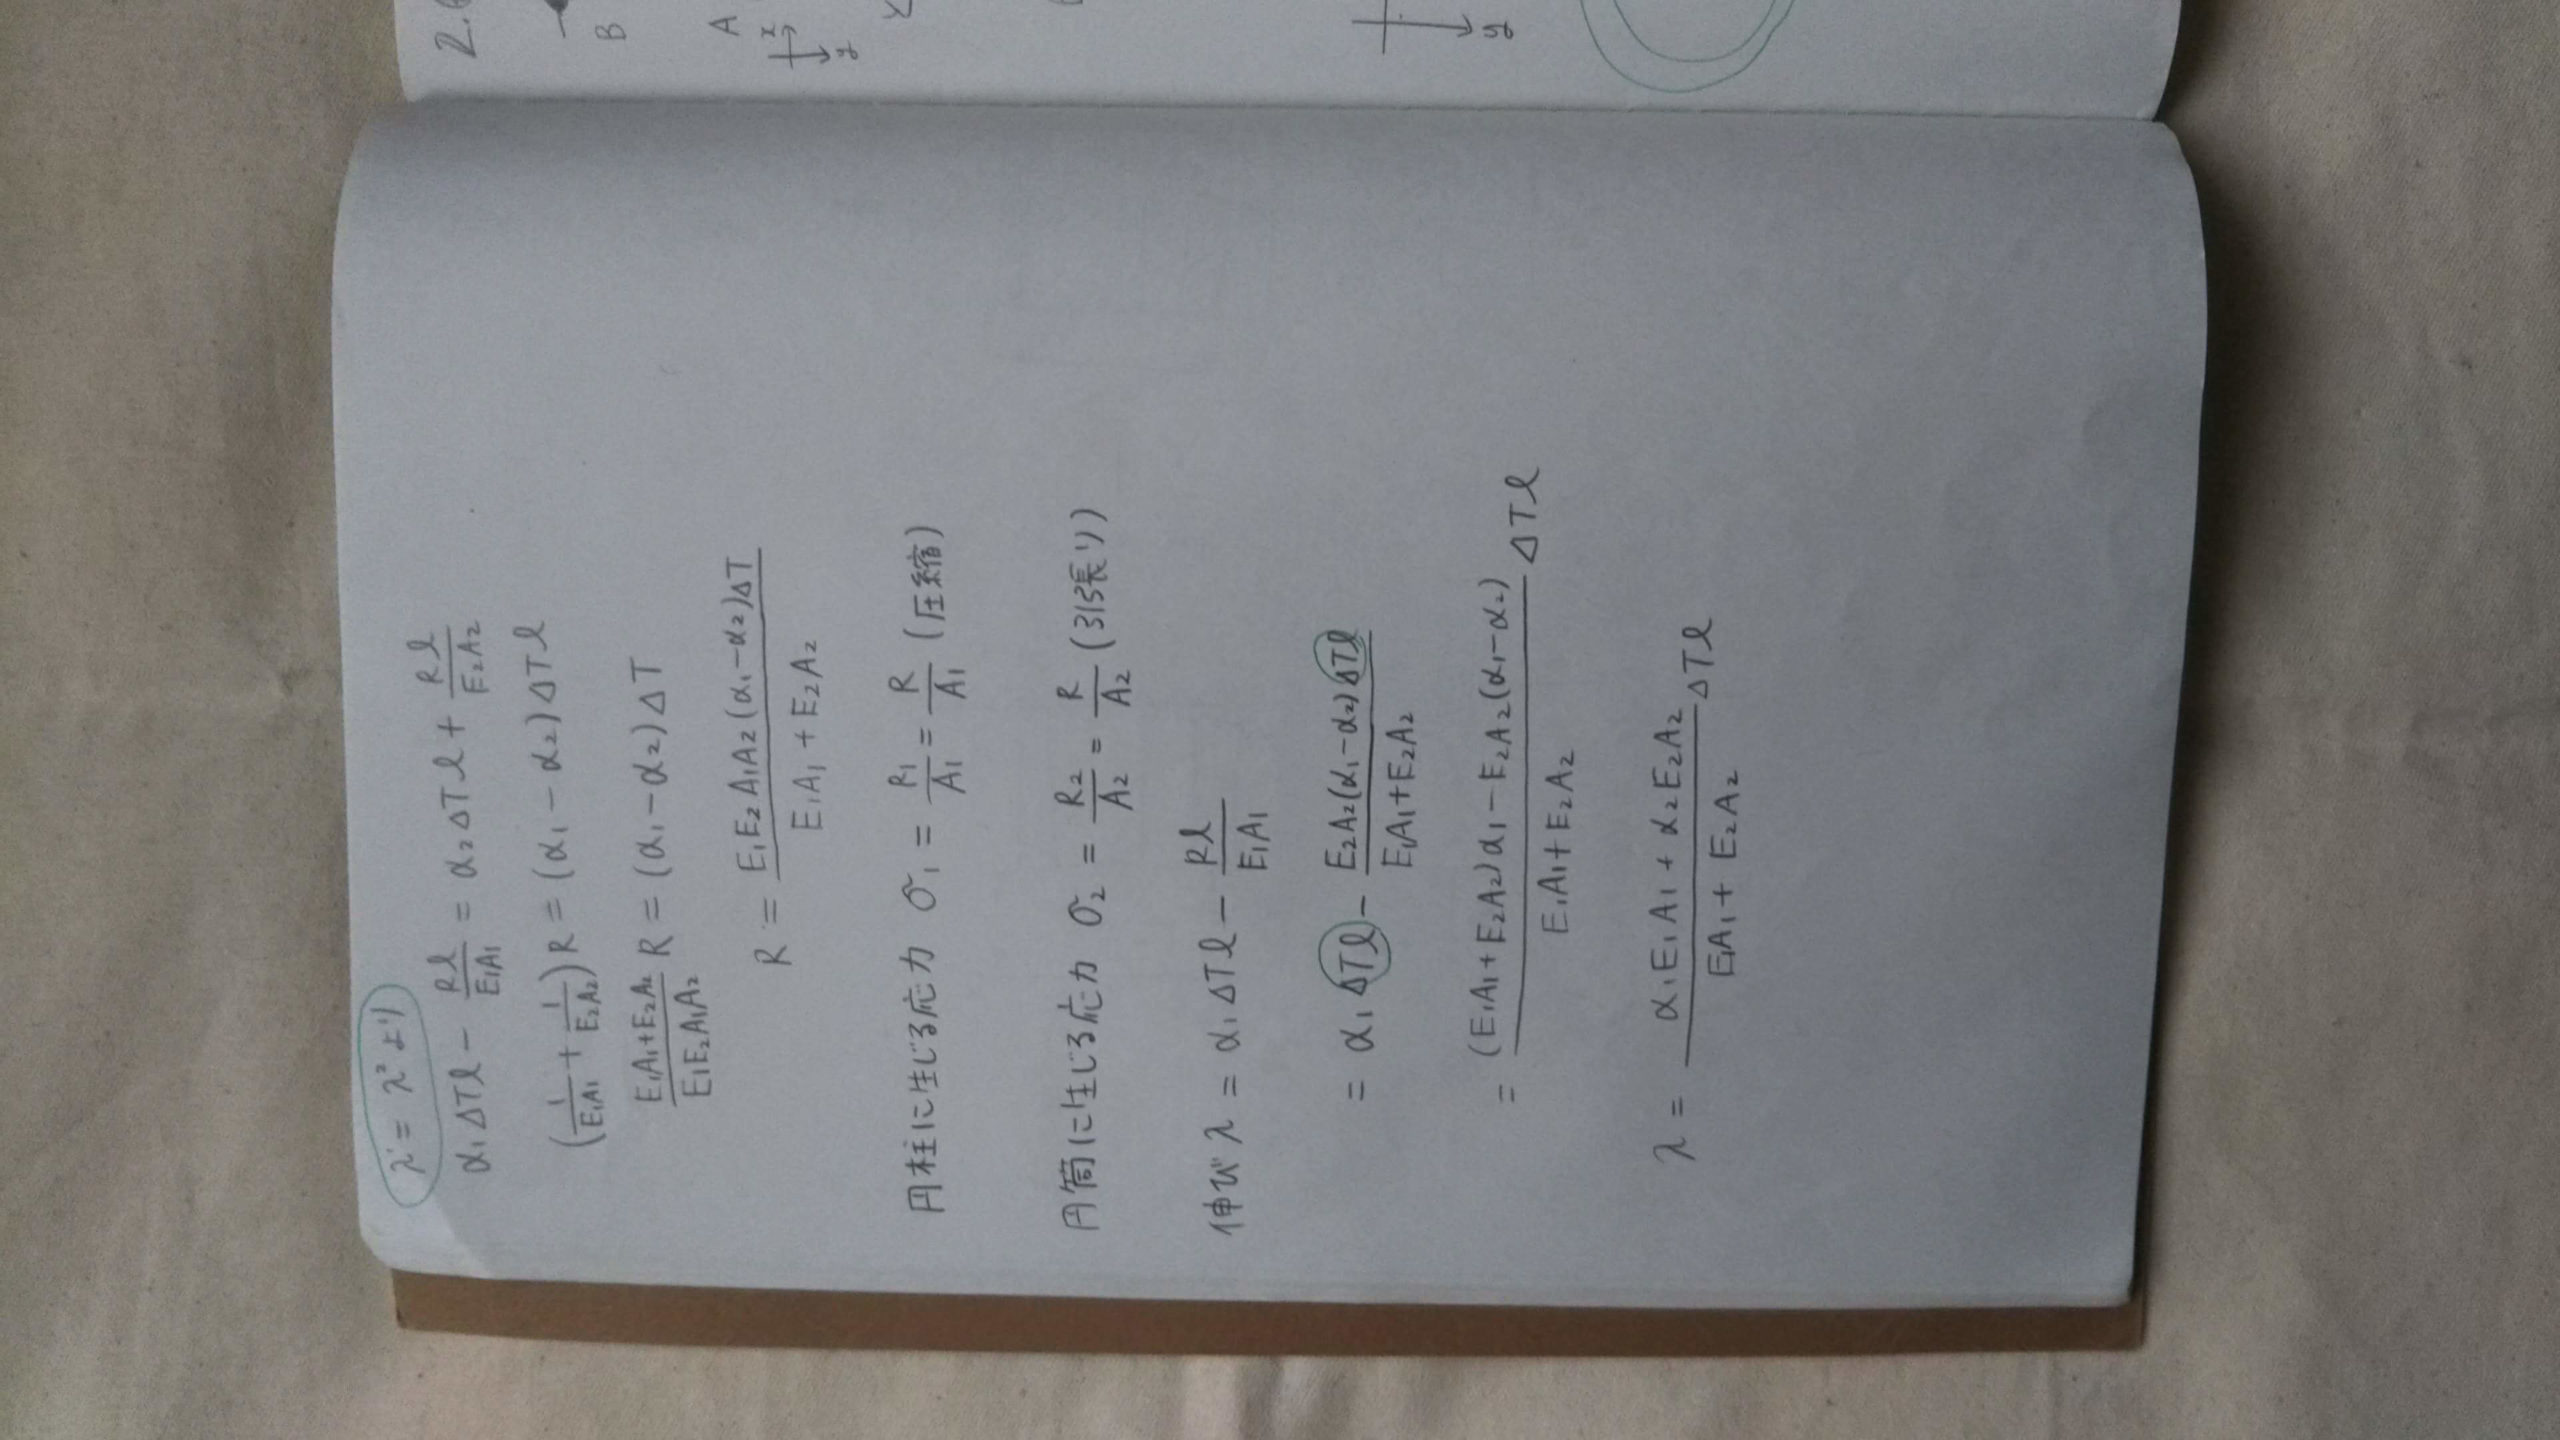 λ' = λ² より
α₁ΔTl - Rl/E₁A₁ = α₂ΔTl + Rl/E₂A₂
(1/E₁A₁ + 1/E₂A₂)R = (α₁ - α₂)ΔTl
E₁A₁+E₂A₂/E₁E₂A₁A₂ R = (α₁-α₂)ΔT
R = E₁E₂A₁A₂(α₁-α₂)ΔT/E₁A₁+E₂A₂
円柱に生じる応力 σ₁ = R₁/A₁ = R/A₁ (圧縮)
円筒に生じる応力 σ₂ = R₂/A₂ = R/A₂ (引張り)
伸び λ = α₁ΔTl - Rl/E₁A₁
= α₁ΔTl - E₂A₂(α₁-α₂)ΔTl/E₁A₁+E₂A₂
= (E₁A₁+E₂A₂)α₁-E₂A₂(α₁-α₂)/E₁A₁+E₂A₂ ΔTl
λ = α₁E₁A₁ + α₂E₂A₂/E₁A₁ + E₂A₂ ΔTl
2.
B
A
x
y
y